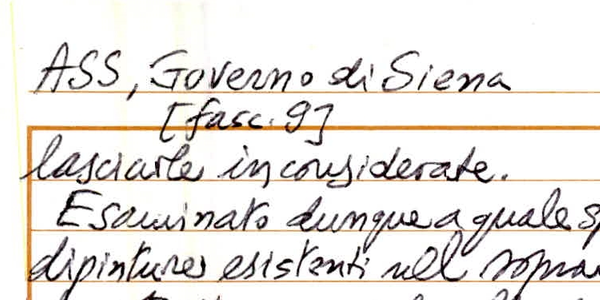 ASS, Governo di Siena
[fasc. 9]
lasciarle inconsiderate.
Esaminato dunque a quale
dipinture esistenti nel